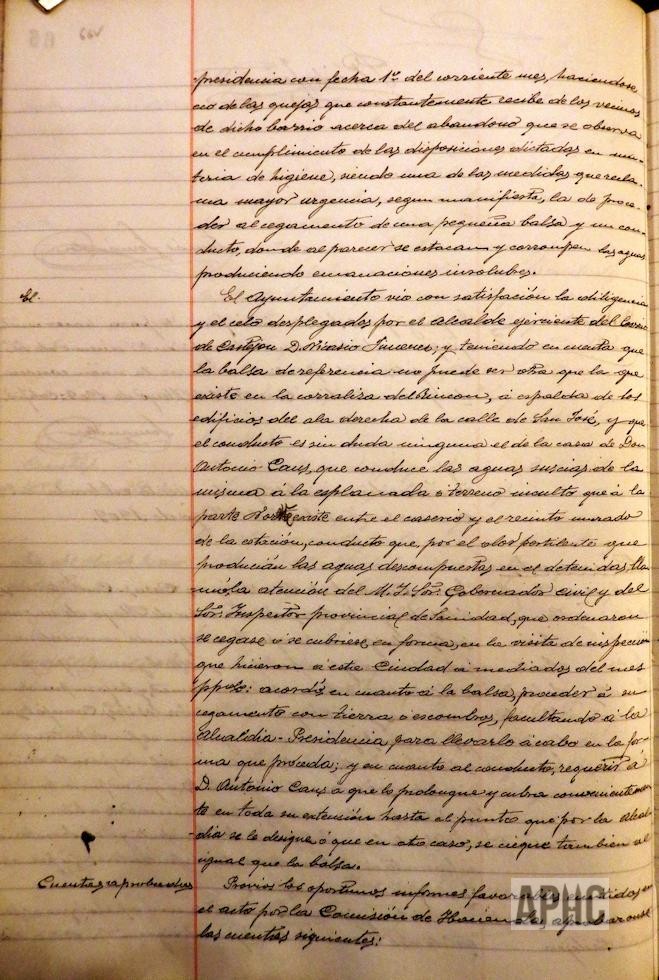 presidencia con fecha 1º del corriente mes, haciendose
eco de las quejas que constantemente recibe de los vecinos
de dicho barrio acerca del abandono que se observa
en el cumplimiento de las disposiciones dictadas en ma-
teria de higiene, siendo una de las medidas que recla-
ma mayor urgencia, segun manifiesta, la de proce-
der al cegamento de una pequeña balsa y un con-
ducto, donde al parecer se estacan y corrompen las aguas
produciendo emanaciones insolubres.
El.
El Ayuntamiento vio con satisfacción la diligencia
y el celo desplegados por el Alcalde ejerciente del barrio
de Castejon D. Nicasio Jimenez; y teniendo en cuenta que
la balsa de referencia no puede ser otra que la que
existe en la corraliza del Rincon, á espalda de los
edificios del ala derecha de la calle de San José, y que
el conducto es sin duda ninguna el de la casa de Don
Antonio Caus, que conduce las aguas suscias de la
misma á la esplanada ó terreno inculto que á la
parte Norte existe entre el caserio y el recinto murado
de la estación, conducto que, por el olor pertilente que
producian las aguas descompuestas en el detenidas, lla-
mó la atención del M. I. Sor. Gobernador civil y del
Sor. Inspector provincial de Sanidad, que ordenaron
se cegase ó se cubriese en forma, en la visita de inspeccion
que hicieron á esta Ciudad á mediados del mes
ppdo: acordó en cuanto á la balsa, proceder á su
cegamento con tierra ó escombros, facultando á la
Alcaldia-Presidencia para llevarlo á cabo en la for-
ma que proceda; y en cuanto al conducto, requerir á
D. Antonio Caus a que lo prolongue y cubra convenientemen-
te en toda su extensión hasta el punto que por la Alcal-
dia se le designe, ó que en otro caso, se ciegue tambien al
igual que la balsa.
Cuentas aprobadas
Previos los oportunos informes favorables emitidos en
el acto por la Comisión de Hacienda, aprobaronse
las cuentas siguientes:
APHC